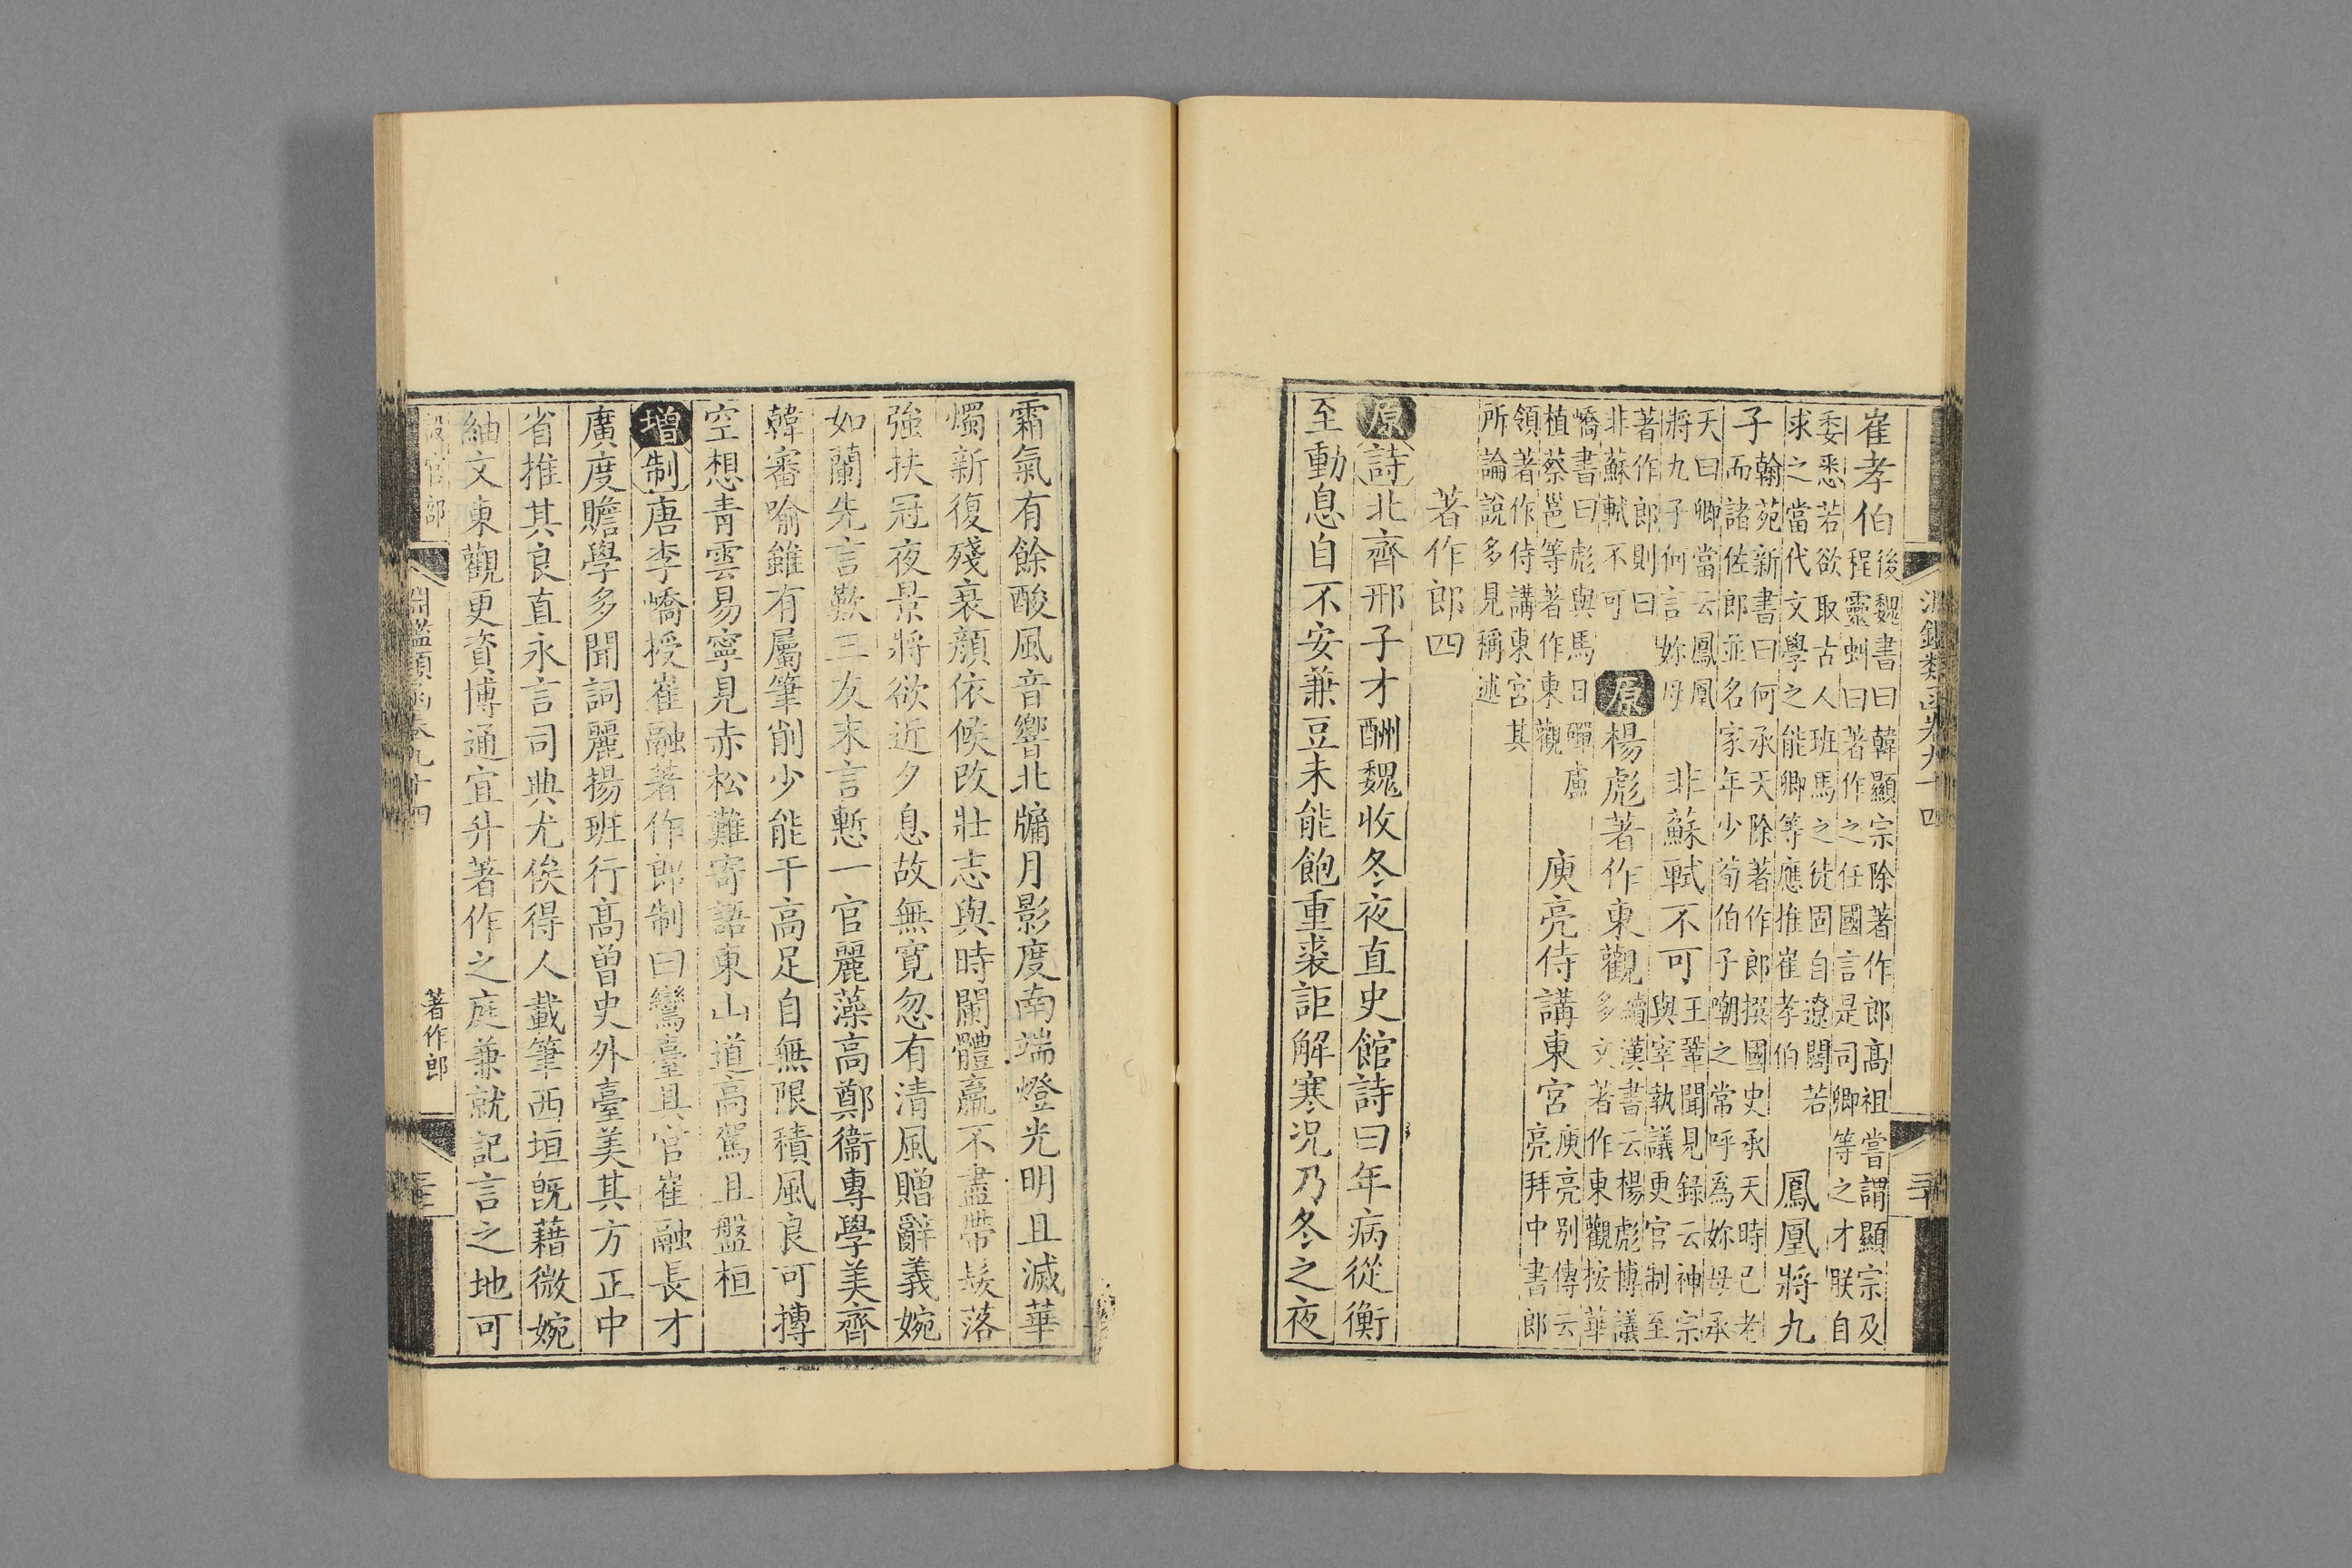 淵鑑類函卷九十四
崔孝伯後魏書曰韓顯宗除著作郎高祖嘗謂顯宗及
程靈虬曰著作之任國言是司卿等之才朕自
委悉若欲取古人班馬之徒固自遼闊若
求之當代文學之能卿等應推崔孝伯鳳凰將九
子翰苑新書曰何承天除著作郎撰國史承天時已老
而諸佐郎並名家年少荀伯子嘲之常呼爲妳母承
天曰卿當云鳳凰
將九子何言妳母非蘇軾不可王鞏聞見録云神宗
與宰執議更官制至
著作郎則曰
非蘇軾不可原楊彪著作東觀續漢書云楊彪博議
多文著作東觀按華
嶠書曰彪與馬日磾盧
植蔡邕等著作東觀庾亮侍講東宮庾亮别傳云
亮拜中書郎
領著作侍講東宮其
所論說多見稱述
著作郎四
原詩北齊邢子才酬魏收冬夜直史館詩曰年病從衡
至動息自不安兼豆未能飽重裘詎解寒况乃冬之夜
霜氣有餘酸風音響北牖月影度南端燈光明且滅華
燭新復殘衰顏依候改壯志與時闌體羸不盡帶髮落
強扶冠夜景將欲近夕息故無寬忽有清風贈辭義婉
如蘭先言歎三友末言慙一官麗藻高鄭衞專學美齊
韓審喻雖有屬筆削少能干高足自無限積風良可摶
空想青雲易寧見赤松難寄語東山道高駕且盤桓
增制唐李嶠授崔融著作郎制曰鸞臺具官崔融長才
廣度贍學多聞詞麗揚班行高曾史外臺美其方正中
省推其良直永言司典尤俟得人載筆西垣旣藉微婉
紬文東觀更資博通宜升著作之庭兼就記言之地可
設官部
淵鑑類函卷九十四
著作郎